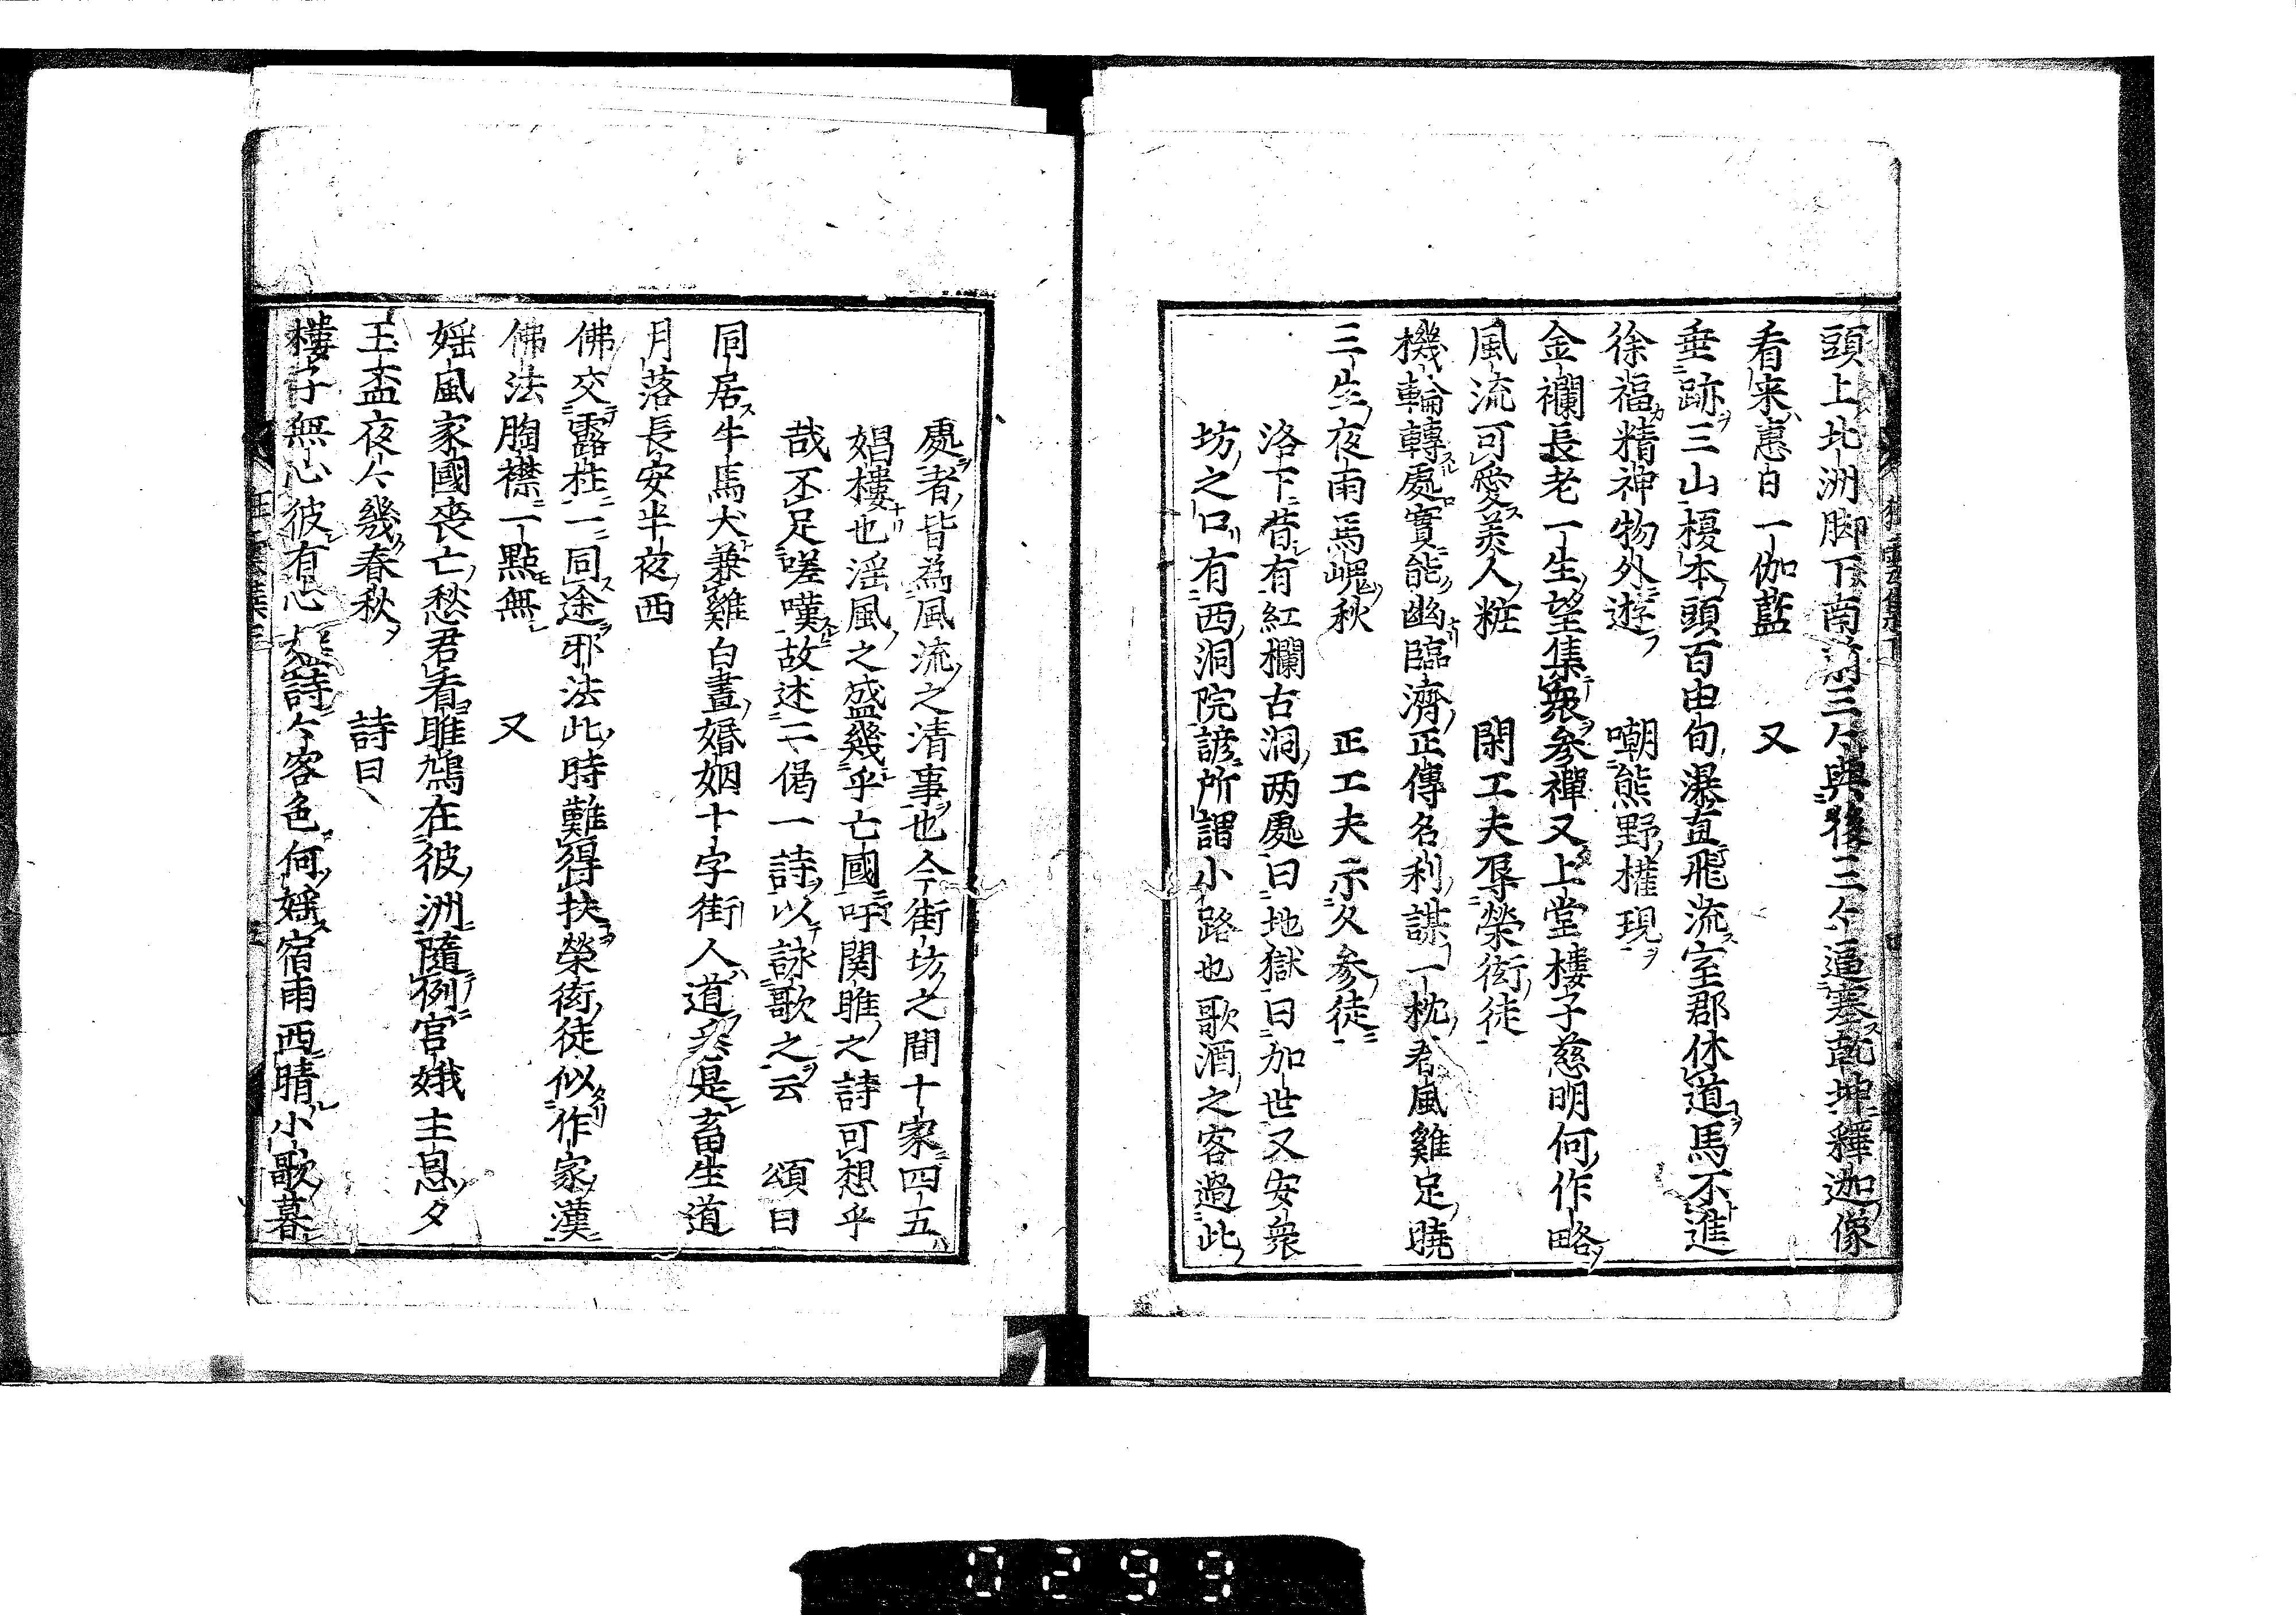 頭上北洲脚下南前三々與後三々逼塞乾坤釋迦像
看来應日一伽藍　又
垂跡三山榎本頭百由旬瀑直飛流室郡休道馬不進
徐福精神物外遊　嘲熊野權現
金襴長老一生望集衆参禪又上堂樓子慈明何作略
風流可愛美人粧　閑工夫辱榮衒徒
機輪轉處實能幽臨濟正傳名利謀一枕春風雞足曉
三生夜雨馬嵬秋　正工夫示久参徒
洛下昔有紅欄古洞両處曰地獄曰加世又安衆
坊之口有西洞院諺所謂小路也歌酒之客過此
處者皆為風流之清事也今街坊之間十家四五
娼樓也淫風之盛幾乎亡國吁関雎之詩可想乎
哉不足嗟嘆故述二偈一詩以詠歌之云　頌曰
同居牛馬犬兼雞白晝婚姻十字街人道盡是畜生道
月落長安半夜西
佛交露柱一同途邪法此時難得扶榮衒徒似作家漢
佛法胸襟一點無　又
婬風家國喪亡愁君看雎鳩在彼洲隨例宮娥主恩夕
玉盃夜々幾春秋　詩曰
樓子無心彼有心婬詩々客色何婬宿雨西晴小歌暮
0299